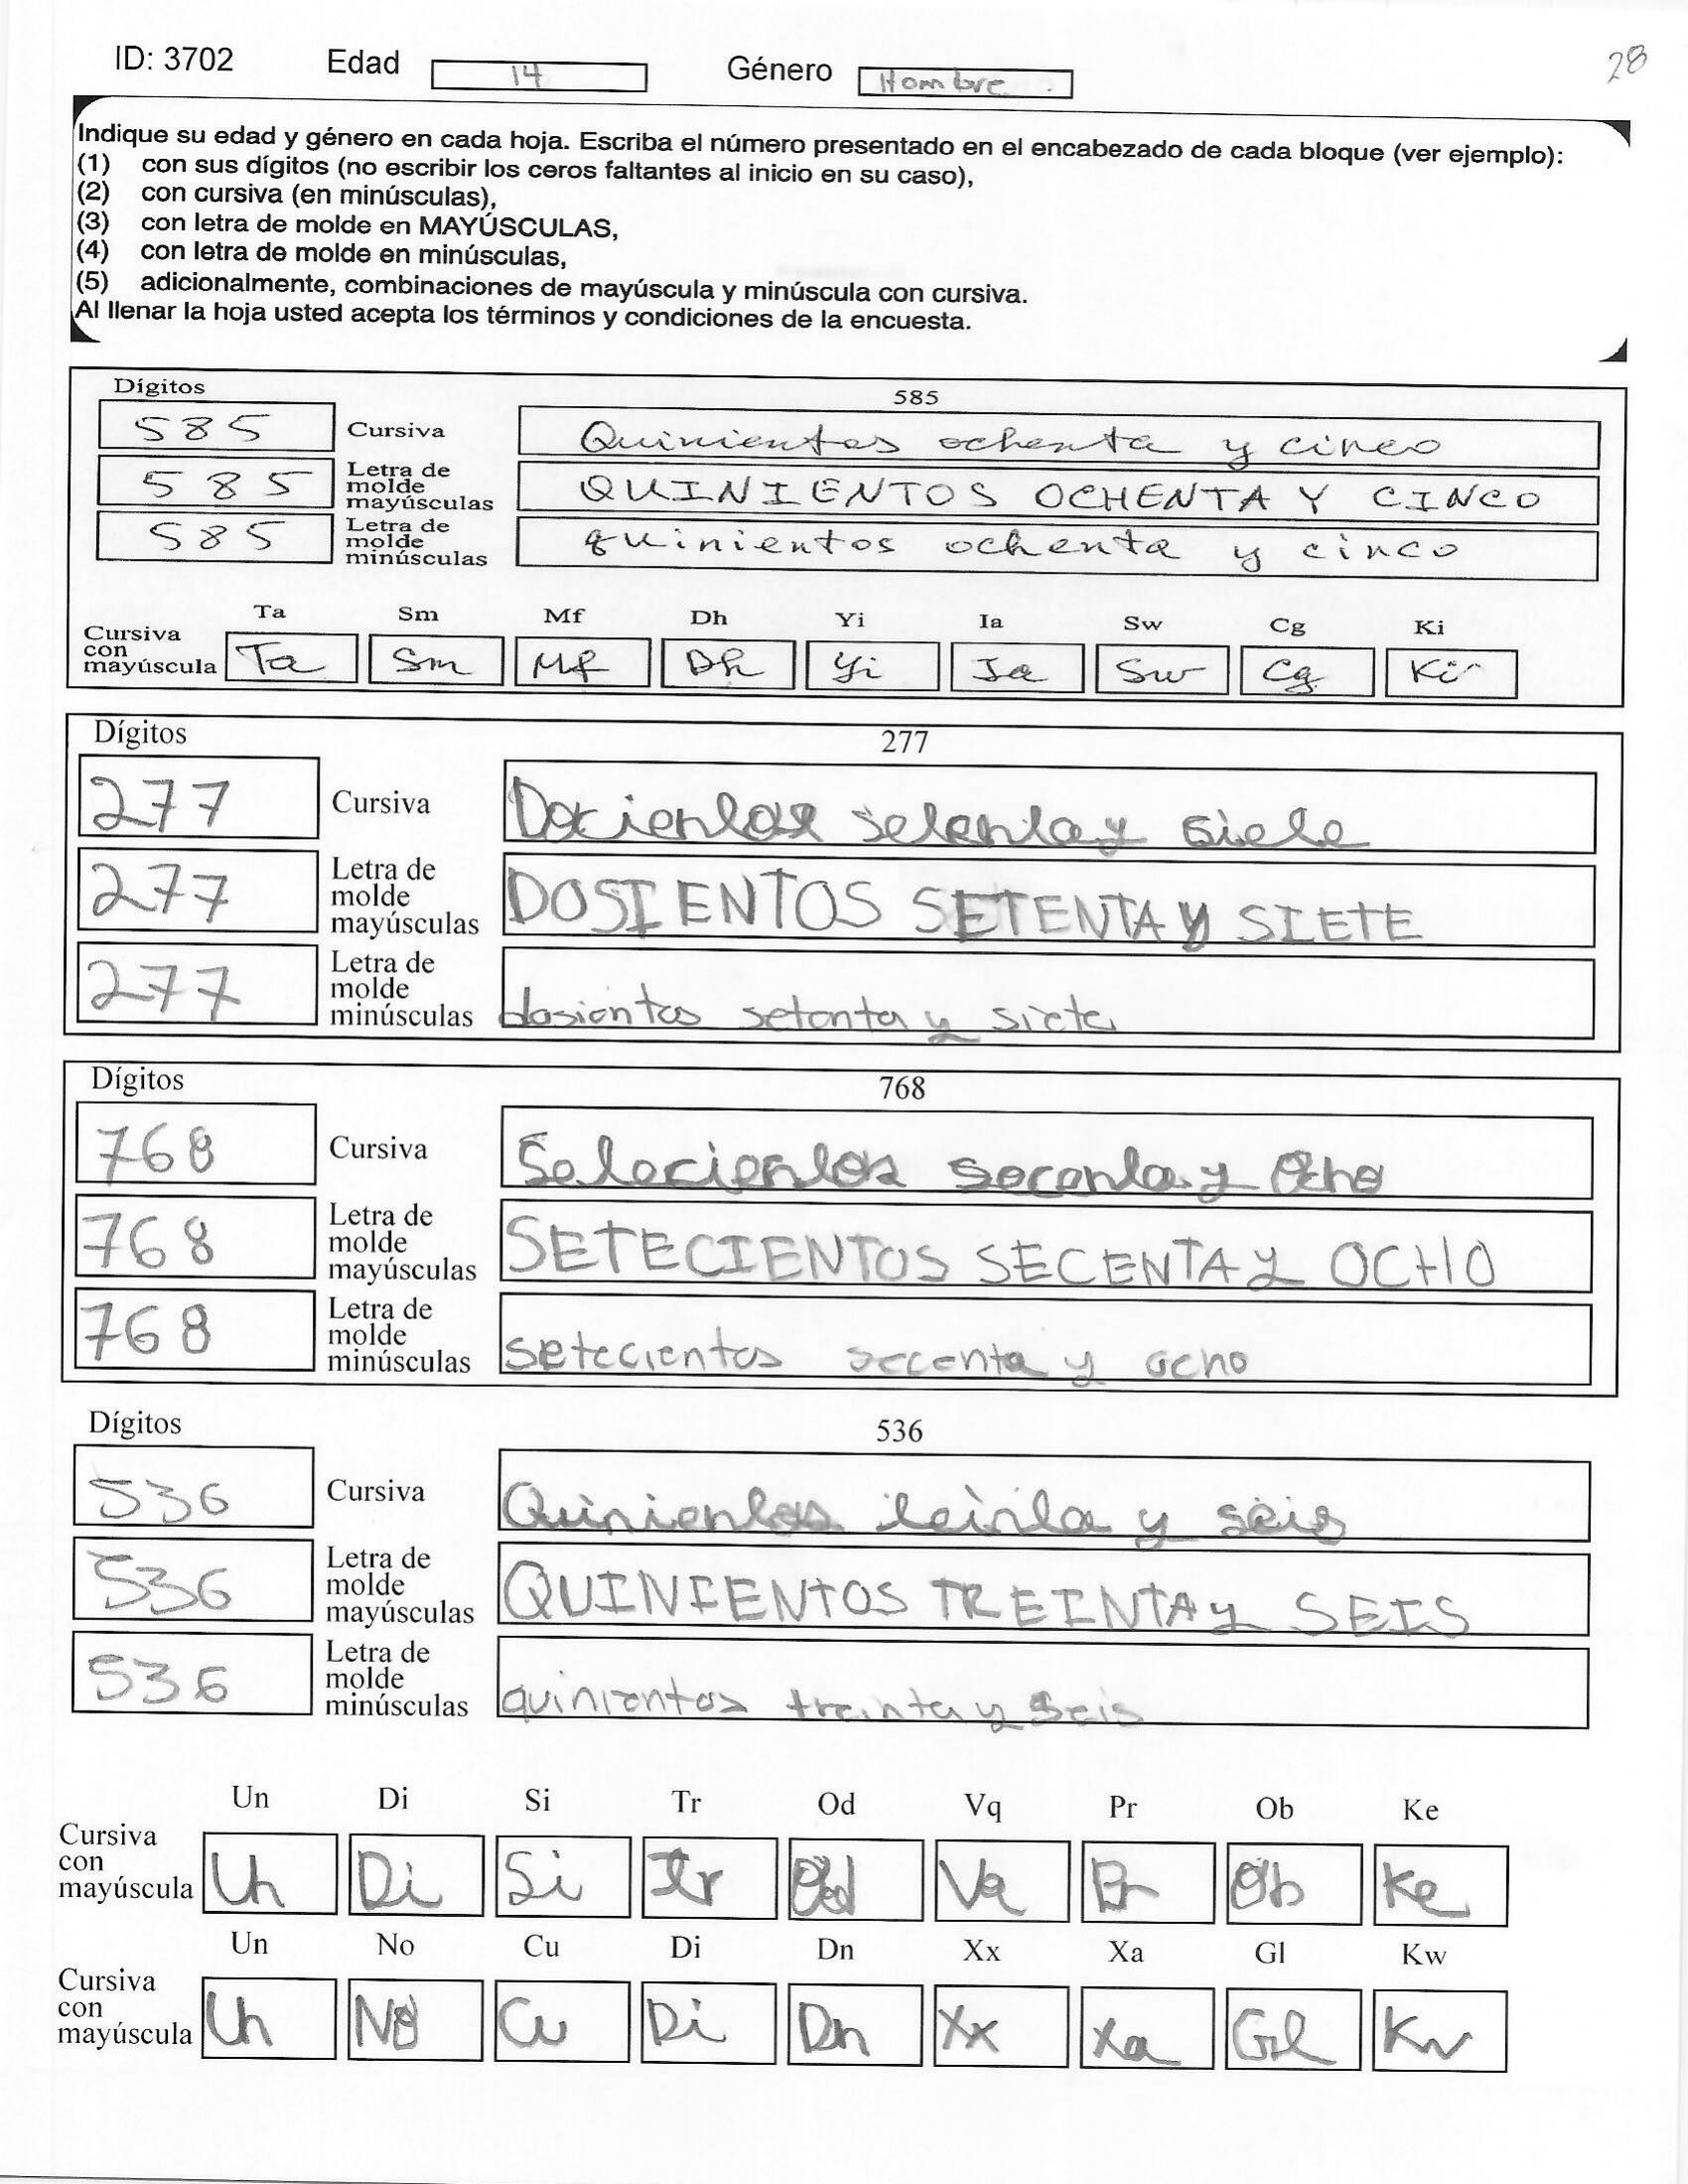 ID: 3702 Edad 14 Género Hombre 28
Indique su edad y género en cada hoja. Escriba el número presentado en el encabezado de cada bloque (ver ejemplo):
(1) con sus dígitos (no escribir los ceros faltantes al inicio en su caso),
(2) con cursiva (en minúsculas),
(3) con letra de molde en MAYÚSCULAS,
(4) con letra de molde en minúsculas,
(5) adicionalmente, combinaciones de mayúscula y minúscula con cursiva.
Al llenar la hoja usted acepta los términos y condiciones de la encuesta.
Dígitos 585
585 Cursiva Quinientos ochenta y cinco
585 Letra de molde mayúsculas QUINIENTOS OCHENTA Y CINCO
585 Letra de molde minúsculas quinientos ochenta y cinco
Ta Sm Mf Dh Yi Ia Sw Cg Ki
Cursiva con mayúscula Ta Sm Mf Dh Yi Ia Sw Cg Ki
Dígitos 277
277 Cursiva Docientos setenta y siete
277 Letra de molde mayúsculas DOSIENTOS SETENTA Y SIETE
277 Letra de molde minúsculas dosientos setenta y siete
Dígitos 768
768 Cursiva Setecientos secenta y Ocho
768 Letra de molde mayúsculas SETECIENTOS SECENTA Y OCHO
768 Letra de molde minúsculas setecientos secenta y ocho
Dígitos 536
536 Cursiva Quinientos teinta y seis
536 Letra de molde mayúsculas QUINIENTOS TREINTA Y SEIS
536 Letra de molde minúsculas quinientos treinta y seis
Un Di Si Tr Od Vq Pr Ob Ke
Cursiva con mayúscula Un Di Si Tr Od Vq Pr Ob Ke
Un No Cu Di Dn Xx Xa Gl Kw
Cursiva con mayúscula Un No Cu Di Dn Xx Xa Gl Kw